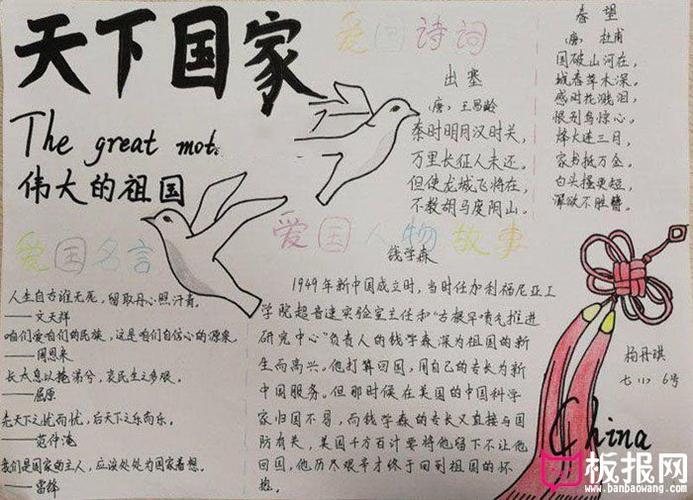 天下国家
The great mot.
伟大的祖国
爱国诗词
出塞
(唐) 王昌龄
秦时明月汉时关,
万里长征人未还。
但使龙城飞将在,
不教胡马度阴山。
春望
(唐) 杜甫
国破山河在,
城春草木深。
感时花溅泪,
恨别鸟惊心。
烽火连三月,
家书抵万金。
白头搔更短,
浑欲不胜簪。
爱国名言
人生自古谁无死, 留取丹心照汗青。
——文天祥
咱们爱咱们的民族, 这是咱们自信心的源泉。
——周恩来
长太息以掩涕兮, 哀民生之多艰。
——屈原
先天下之忧而忧, 后天下之乐而乐。
——范仲淹
我们是国家的主人, 应该处处为国家着想。
——雷锋
爱国人物故事
钱学森
1949年新中国成立时, 当时任加利福尼亚工
学院超音速实验室主任和“古根罕喷气推进
研究中心”负责人的钱学森深为祖国的新
生而高兴。他打算回国, 用自己的专长为新
中国服务。但那时候在美国的中国科学
家归国不易, 而钱学森的专长又直接与国
防有关, 美国千方百计要将他留下不让他
回国, 他历尽艰辛才终于回到祖国的怀
抱。
杨丹琪
七(1) 6号
China
板报网
www.banbaowang.com